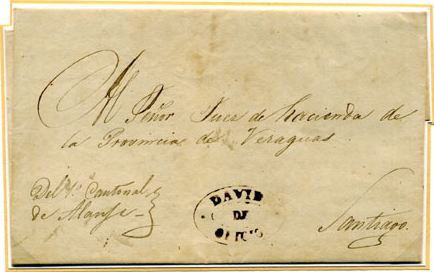 Al Señor Jues de hacienda de
la Provincia de Veraguas.
Del Jᵉ Cantonal
de Alanje
DAVID
DE
OFICIO
Santiago.